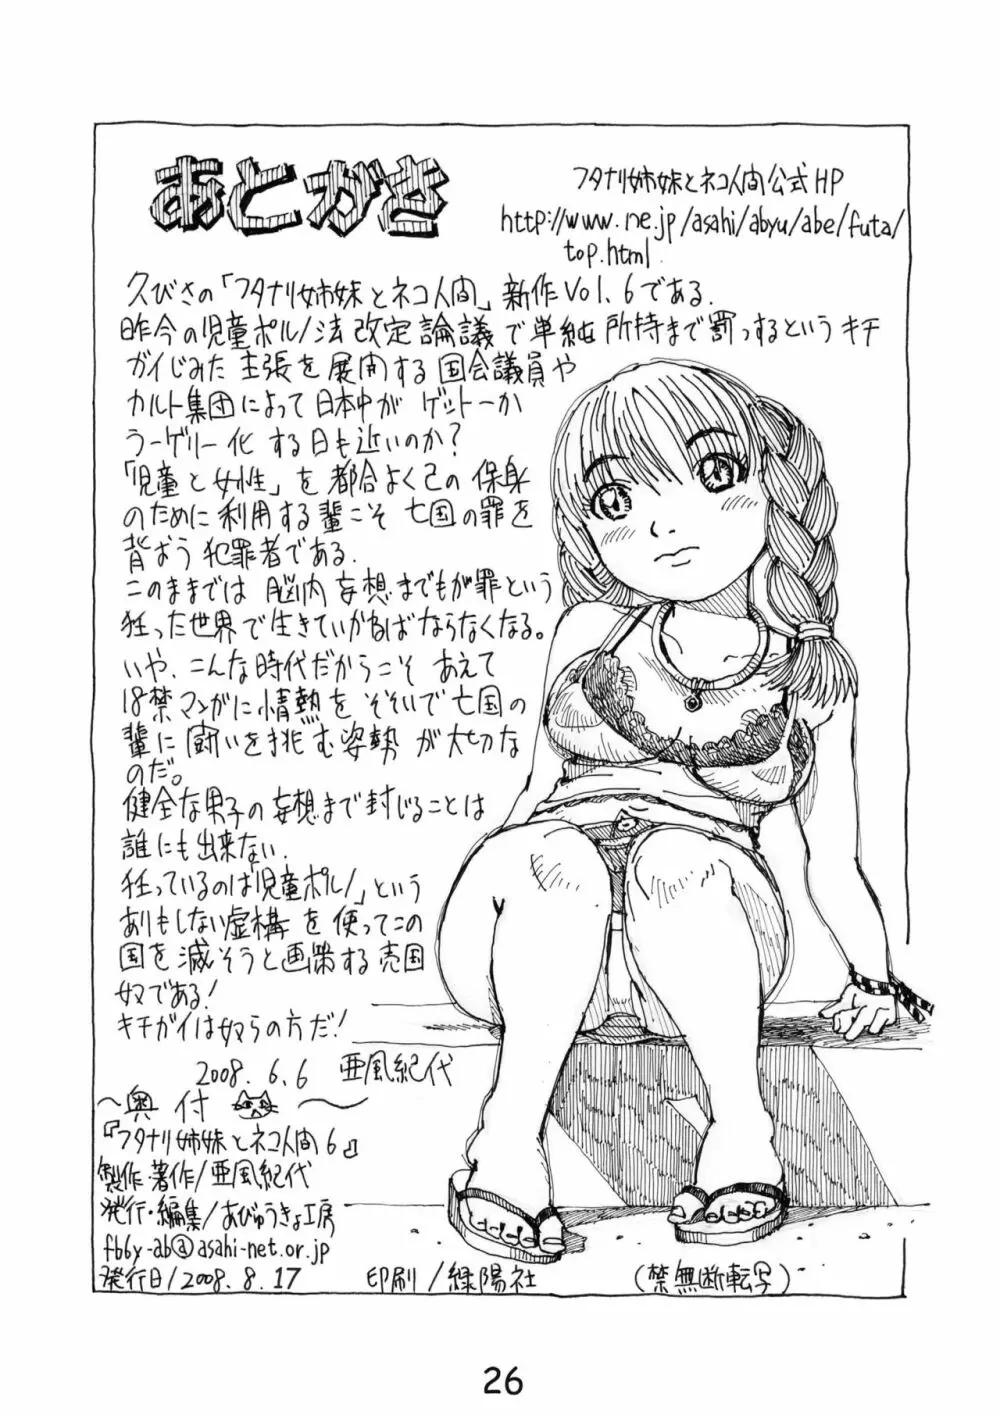 あとがき
フタナリ姉妹とネコ人間公式HP
http://www.ne.jp/asahi/abyu/abe/futa/
top.html
久びさの「フタナリ姉妹とネコ人間」新作Vol.6である.
昨今の児童ポルノ法改定論議で単純所持まで罰っするというキチ
ガイじみた主張を展開する国会議員や
カルト集団によって日本中がゲットーか
ラーゲリー化する日も近いのか?
「児童と女性」を都合よく己の保身
のために利用する輩こそ亡国の罪を
背おう犯罪者である.
このままでは脳内妄想までもが罪という
狂った世界で生きていかねばならなくなる。
いや、こんな時代だからこそあえて
18禁マンガに情熱をそそいで亡国の
輩に闘いを挑む姿勢が大切な
のだ。
健全な男子の妄想まで封じることは
誰にも出来ない.
狂っているのは「児童ポルノ」という
ありもしない虚構を使ってこの
国を滅そうと画策する売国
奴である!
キチガイは奴らの方だ!
2008.6.6 亜風紀代
〜奥付〜
『フタナリ姉妹とネコ人間6』
製作・著作/亜風紀代
発行・編集/あびゅうきょ工房
fb6y-ab@asahi-net.or.jp
発行日/2008.8.17 印刷/緑陽社 (禁無断転写)
26